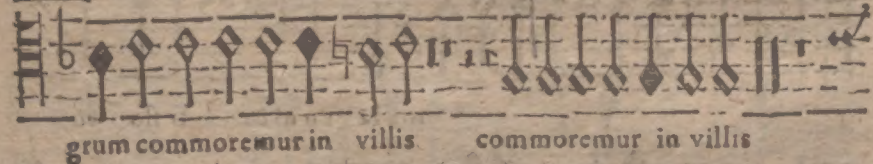 grum commoremur in villis commoremur in villis